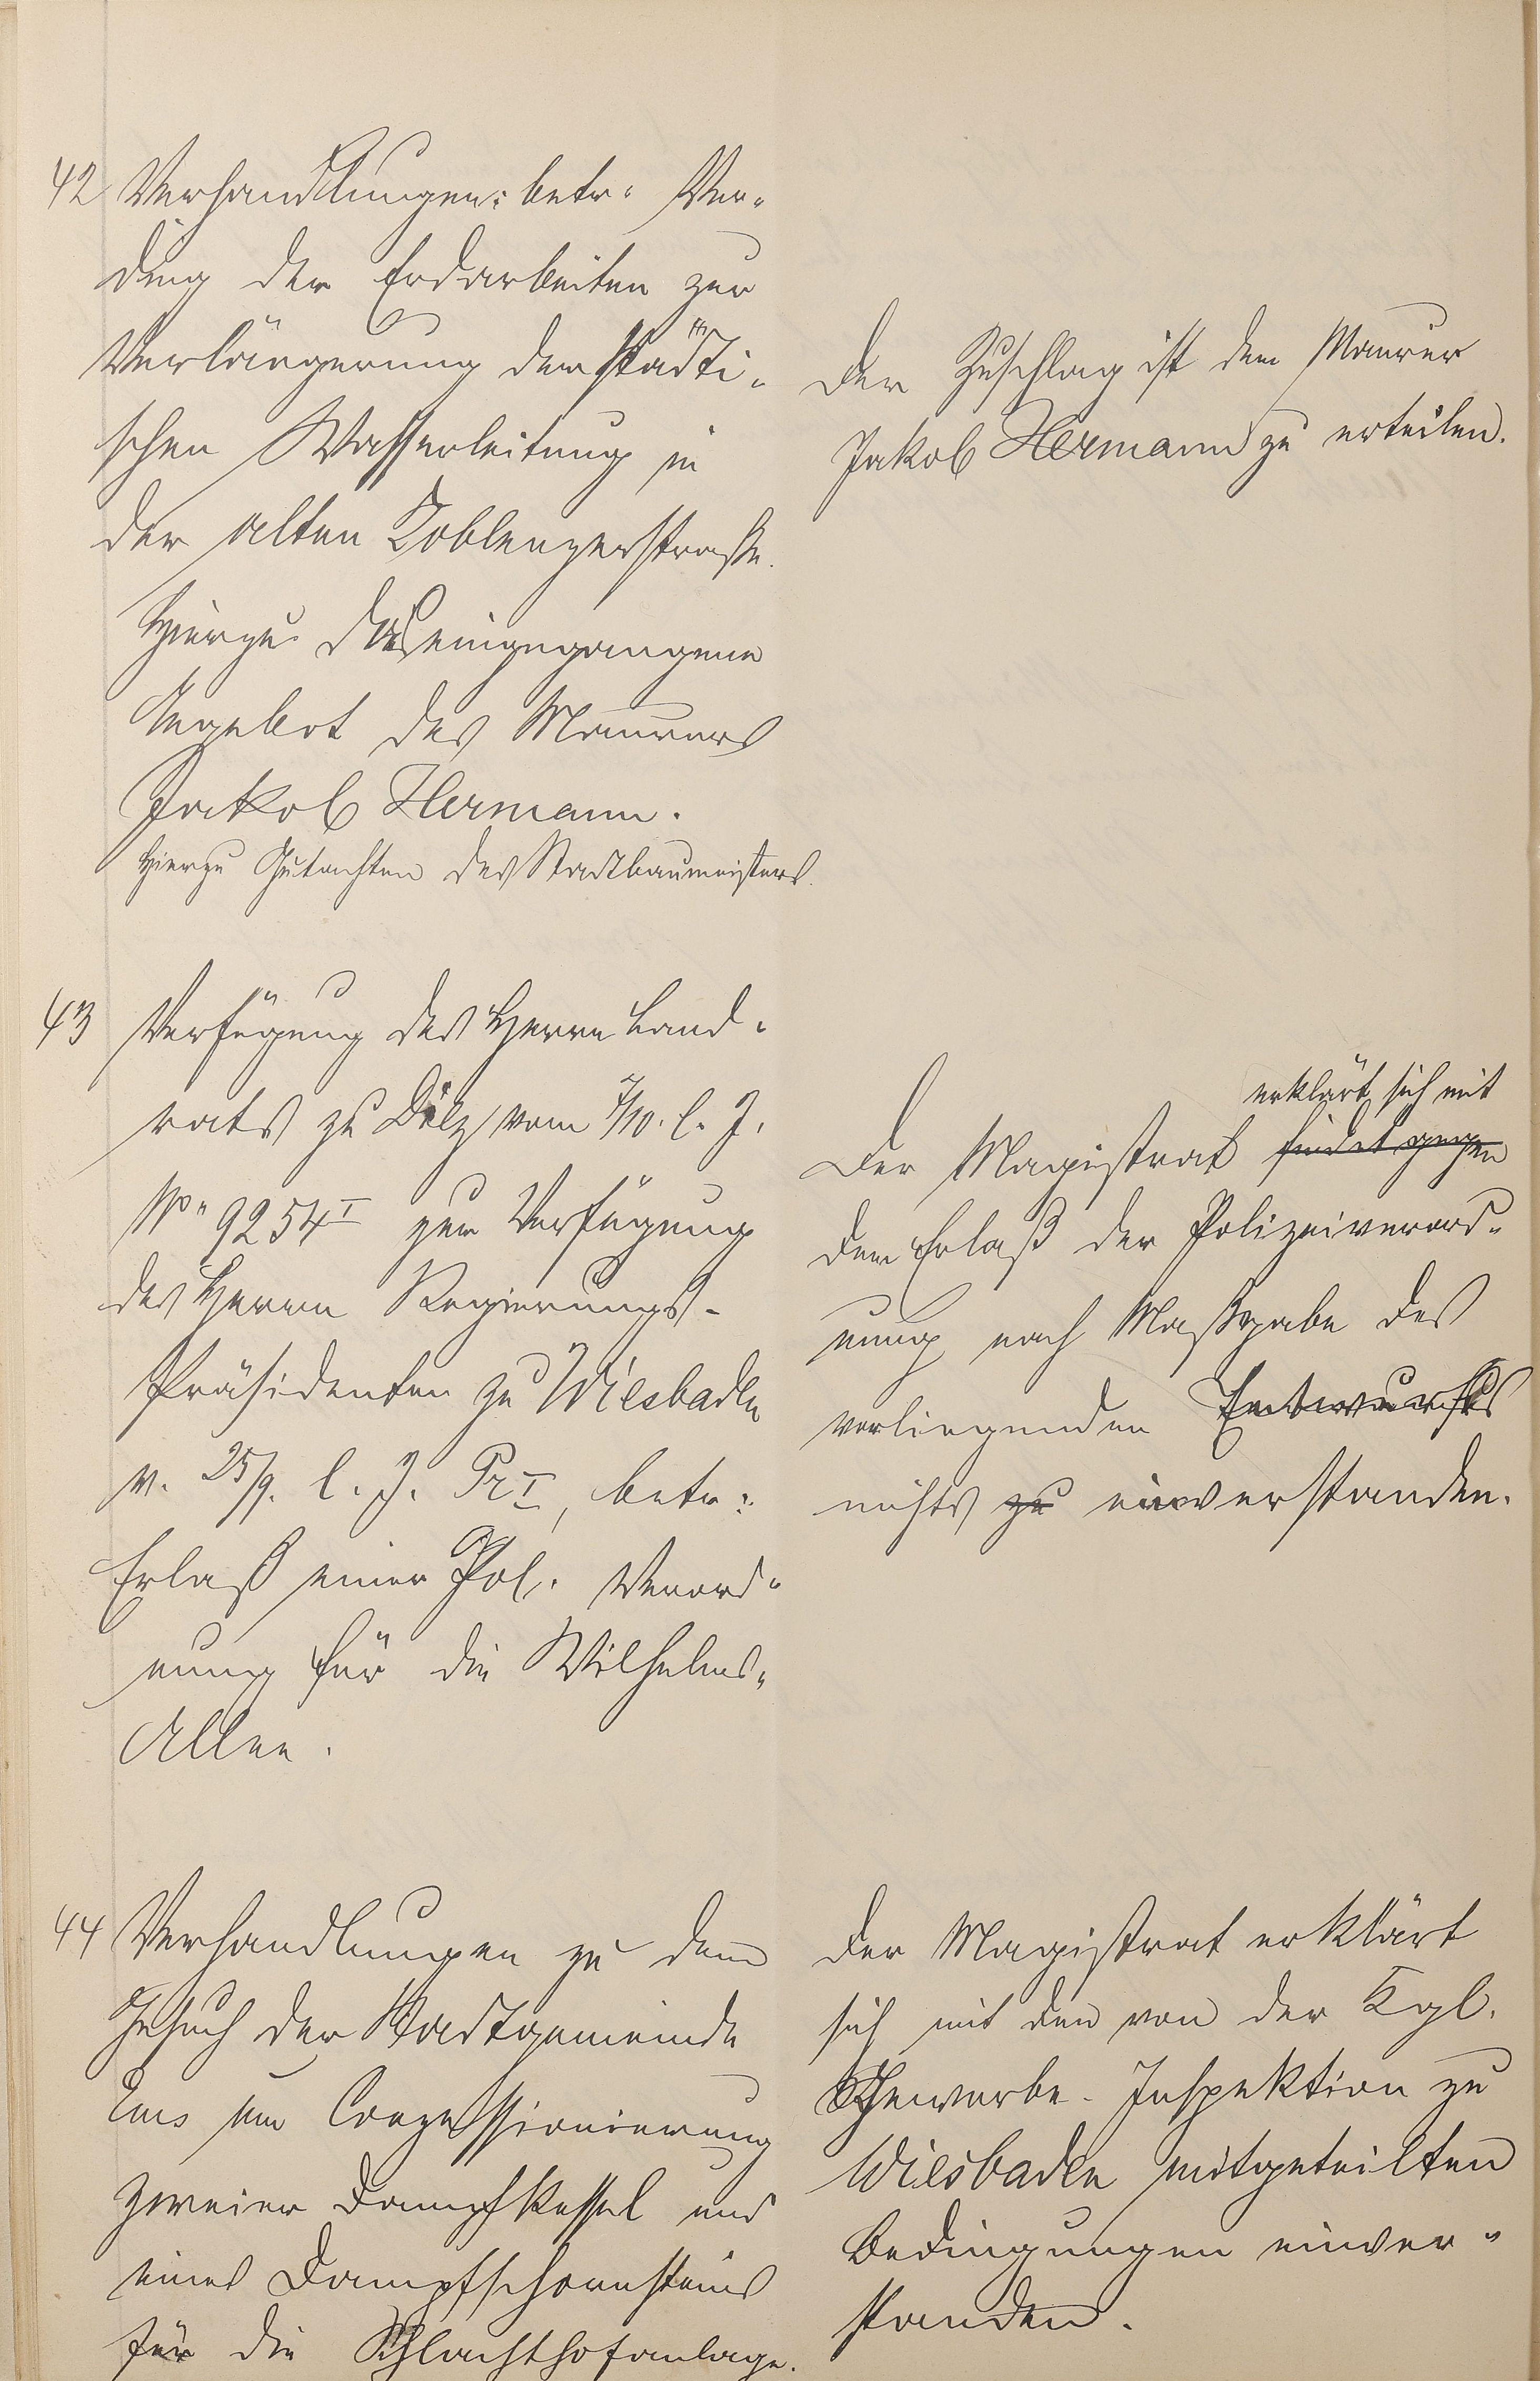 42 Verhandlungen: betr. Ver-
ding der Erdarbeiten zur
Verlängerung der städti-
schen Wasserleitung in
der alten Koblenzerstraße.
Hierzu das eingegangene
Angebot des Maurers
Jakob Hermann.
Hierzu Gutachten des Stadtbaumeisters.
Der Zuschlag ist dem Maurer
Jakob Hermann zu erteilen.
43 Verfügung des Herrn Land-
rats zu Diez vom 7/10. l. J.
No 9254 I zur Verfügung
des Herrn Regierungs-
Präsidenten zu Wiesbaden
v. 25/9. l. J. Pr I, betr.:
Erlaß einer Pol. Verord-
nung für die Wilhelms-
Allee.
erklärt sich mit
Der Magistrat findet gegen
dem Erlaß der Polizeiverord-
nung nach Maßgabe des
vorliegenden Entwurfes
nichts zu einverstanden.
44 Verhandlungen zu dem
Gesuch der Stadtgemeinde
Ems um Conzessionierung
zweier Dampfkessel und
eines Dampfschornsteins
für die Schlachthofanlage.
Der Magistrat erklärt
sich mit den von der Kgl.
Gewerbe-Inspektion zu
Wiesbaden mitgeteilten
Bedingungen einver-
standen.